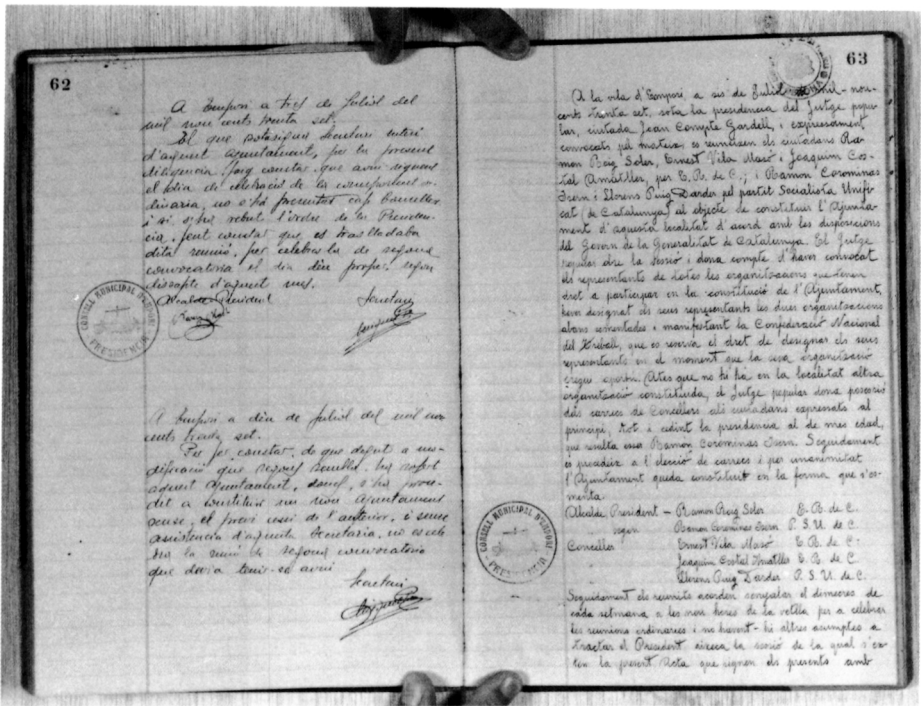 62
A Empori a tres de Juliol del
mil nou cents trenta set.
El que sotasigna Secretari interí
d'aquest Ajuntament, per la present
diligencia, faig constar que avui
el dia de celebració de la corresponent or-
dinaria, no s'há presentat cap Conceller
i si s'ha rebut l'ordre de la Presiden-
cia, fent constar que es traslladaba
dita reunió, per celebrar-la de segona
convocatoria el dia deu propvi.
dissapte d'aquest mes.
Alcalde President
Secretari
CONSELL MUNICIPAL D'EMPORI
PRESIDENCIA
A Empori a deu de Juliol del mil nou
cents trenta set.
Es fa constar, de que degut a
que ha sofert
aquest Ajuntament, donçs, s'ha proce-
dit a constituir un nou Ajuntament
sense el previ de l'anterior, i sense
assistencia d'aquesta Secretaria, no es cele-
bra la reunió de segona convocatoria
que devia tenir-se avui
Secretari
63
A la vila d'Empori, a sis de Juliol mil nou-
cents trenta set, sota la presidencia del Jutge popu-
lar, ciutadá Joan Compte Gardell, i expressament
convocats pel mateix, es reuneixen els ciutadans Ra-
mon Roig Soler, Ernest Vila Masó i Joaquim Cos-
tal Amatller, per E. R. de C.; i Ramon Corominas
Isern i Llorens Puig Darder pel partit Socialista Unifi-
cat (de Catalunya) al objecte de constituir l'Ajunta-
ment d'aquesta localitat d'acord amb les disposicions
del Govern de la Generalitat de Catalunya. El Jutge
popular obre la sessió i dona compte d'haver convocat
els representants de totes les organitzacions que tenen
dret a participar en la constitució de l'Ajuntament,
havent designat els seus representants les dues organitzacions
abans esmentades i manifestant la Confederació Nacional
del Treball, que es reserva el dret de designar els seus
representants en el moment que la seva organització
cregui oportú. Ates que no hi há en la localitat altra
organització constituida, el Jutge popular dona possessió
dels carrecs de Concellers als ciutadans expresats al
principi, tot i cedint la presidencia al de mes edad,
que resulta esser Ramon Corominas Isern. Seguidament
es procedeix a l'elecció de carrecs i per unanimitat
l'Ajuntament queda constituit en la forma que s'es-
menta.
Alcalde President — Ramon Roig Soler E. R. de C.
" segon Ramon Corominas Isern P. S. U. de C.
Conceller Ernest Vila Masó E. R. de C.
" Joaquim Costal Amatller E. R. de C.
" Llorens Puig Darder P. S. U. de C.
Seguidament els reunits acorden senyalar el dimecres de
cada setmana a les nou hores de la vetlla per a celebrar
les reunions ordinaries i no havent-hi altres asumptes a
tractar el President aixeca la sessió de la qual s'ex-
ten la present Acta que signen els presents amb
CONSELL MUNICIPAL D'EMPORI
PRESIDENCIA